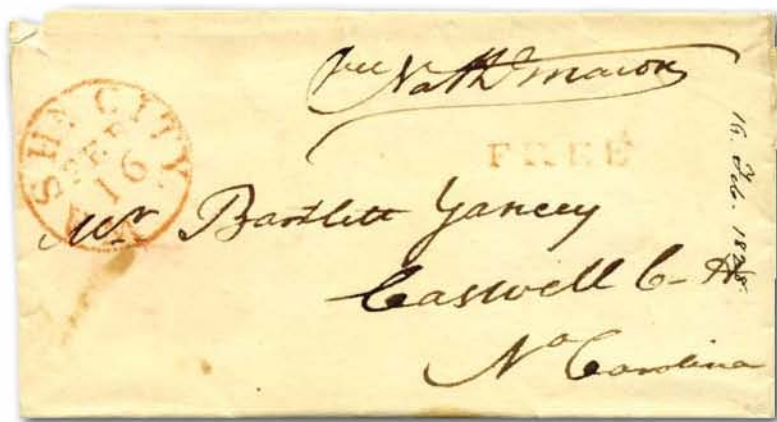 free Nathl Macon
SHN. CITY.
FEB
16
FREE
Mr Bartlett Yancey
Caswell C-H
No Carolina
16. Feb. 1828.